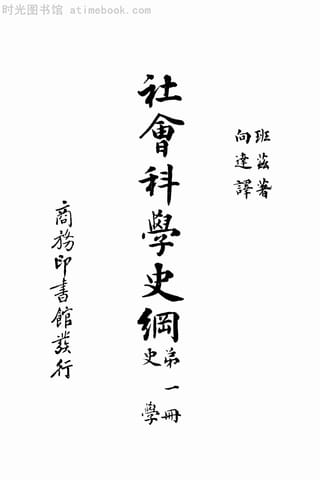 时光图书馆 atimebook.com
班茲著
向達譯
社會科學史綱
第一冊
史學
商務印書館發行